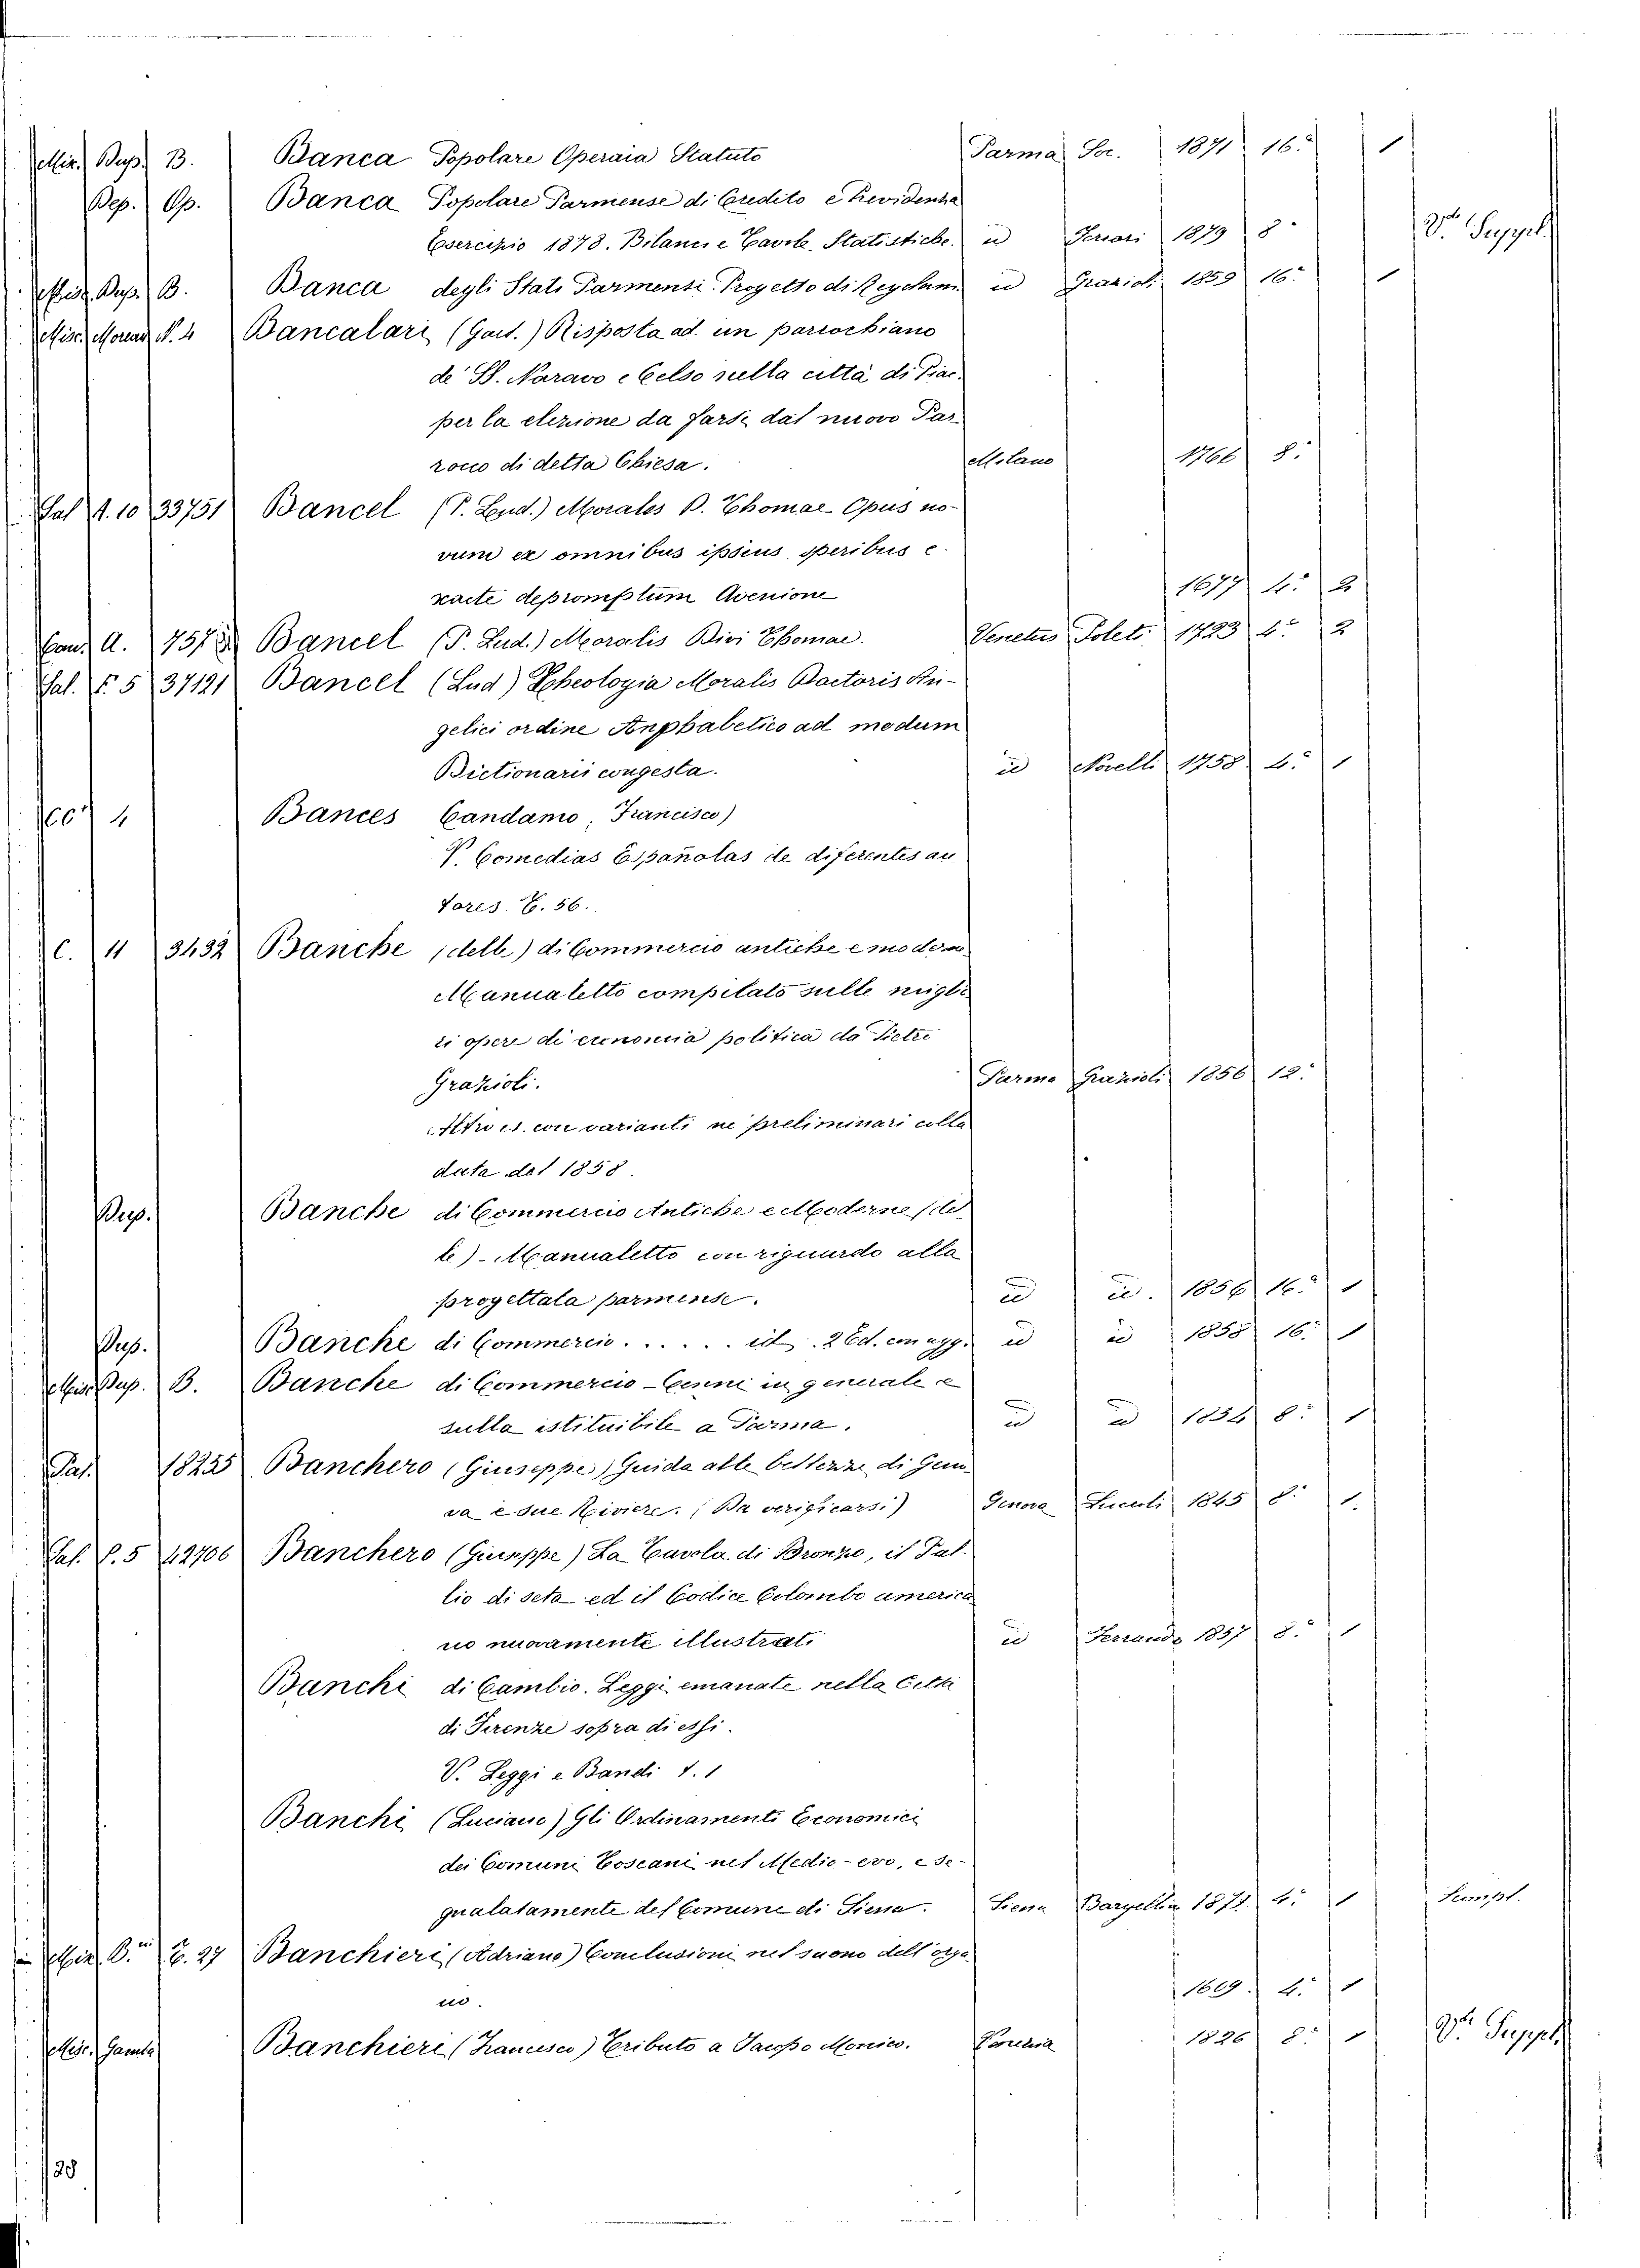 Misc. Dup. B. Banca Popolare Operaia Statuto Parma Soc. 1871 16.° 1
Dep. Op. Banca Popolare Parmense di Credito e Previdenza
Esercizio 1878. Bilanci e Tavole Statistiche. id Ferrari 1879 8° Vi Suppl.
Misc. Dup. B. Banca degli Stati Parmensi Progetto di Regolam. id Grazioli 1859 16° 1
Misc. Morear N. 4 Bancalari (Gaet.) Risposta ad un parrochiano
de' SS. Naravo e Celso sulla città di Piac.
per la elezione da farsi dal nuovo Par-
roco di detta Chiesa. Milano 1766 8.°
Pal A. 10 33751 Bancel (P. Lud.) Morales D. Thomae Opus no-
vum ex omnibus ipsius operibus e-
xacte depromptum Avenione 1677 4.° 2
A. 7572 Bancel (P. Lud.) Moralis Divi Thomae. Venetiis Poleti 1723 4° 2
Pal. F. 5 37121 Bancel (Lud) Theologia Moralis Doctoris An-
gelici ordine Anphabetico ad modum
Dictionarii congesta. id Novelli 1758 4.° 1
4 Bances Candamo, Francisco)
V. Comedias Españolas de diferentes au-
tores T. 56.
C. 11 3432 Banche (delle) di Commercio antiche e moderne
Manualetto compilato sulle miglio
ri opere di economia politica da Pietro
Grazioli. Parma Grazioli 1856 12.°
Altro es. con varianti ne preliminari colla
data del 1858.
Dup. Banche di Commercio Antiche e Moderne (del
le) - Manualetto con riguardo alla
progettata parmense. id id. 1856 16.° 1
Dup. Banche di Commercio . . . . . id. 2 Ed. con agg. id id 1858 16. 1
Misc. Dup. B. Banche di Commercio - Cenni in generale e
sulla istituibile a Parma. id id 1854 8.° 1
Pal. 18235 Banchero (Giuseppe) Guida alle bellezze di Geno-
va e due Riviere. (Da verificarsi) Genova 1845 8.° 1.
Pal. P. 5 42706 Banchero (Giuseppe) La Tavola di Bronzo, il Pal-
lio di seta ed il Codice Colombo america
no nuovamente illustrati id Ferrando 1857 8.° 1
Banchi di Cambio. Leggi emanate nella Città
di Firenze sopra di essi.
V. Leggi e Bandi t. 1
Banchi (Luciano) Gli Ordinamenti Economici
dei Comuni Toscani nel Medio-evo, e se-
gnalatamente del Comune di Siena. Siena Bargellini 1871. 4.° 1
T. 27 Banchieri (Adriano) Conclusioni nel suono dell'orga
no. 1609. 4.° 1
Misc. Gamba Banchieri (Francesco) Tributo a Jacopo Monico. Venezia 1826 8.° 1 Vi Suppl.
128